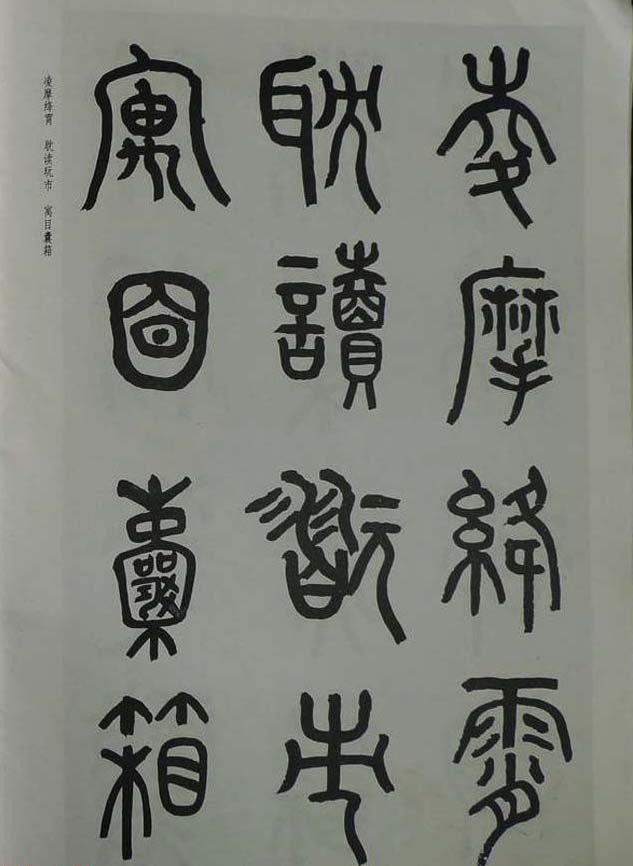 夌摩絳霄
耽讀翫市
寓目囊箱
凌摩绛霄 耽读玩市 寓目囊箱